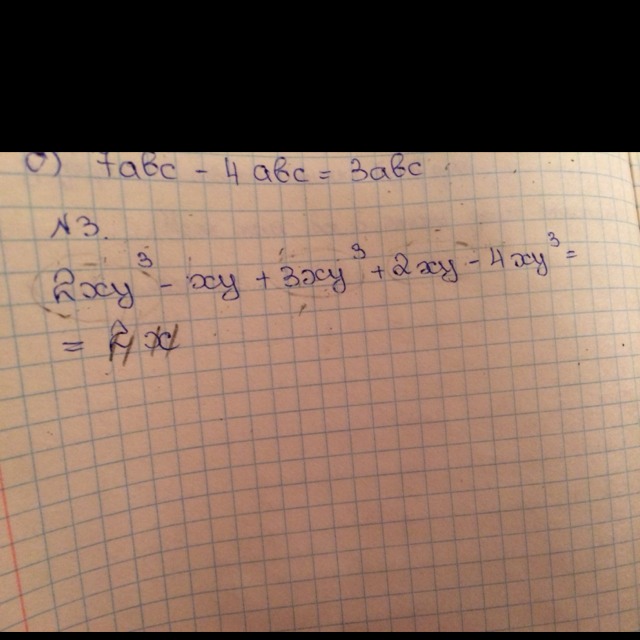 7abc - 4abc = 3abc
N3.
2xy³ - xy + 3xy³ + 2xy - 4xy³ =
= 2x